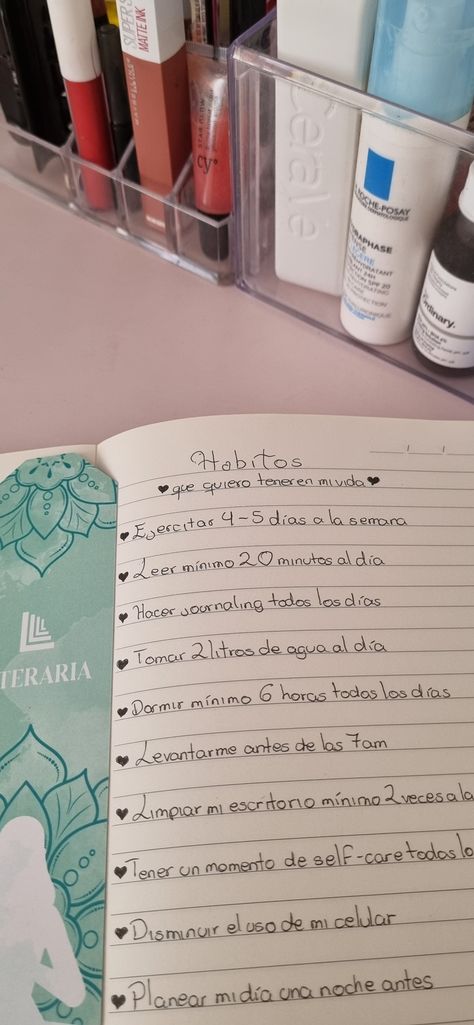 SUPERS
MATTE INK
CeraVe
LA ROCHE-POSAY
SPF 20
Ordinary.
TERARIA
Habitos
♥ que quiero tener en mi vida ♥
♥ Ejercitar 4-5 días a la semana
♥ Leer mínimo 20 minutos al día
♥ Hacer journaling todos los días
♥ Tomar 2 litros de agua al día
♥ Dormir mínimo 6 horas todos los días
♥ Levantarme antes de las 7am
♥ Limpiar mi escritorio mínimo 2 veces a la
♥ Tener un momento de self-care todos lo
♥ Disminuir el uso de mi celular
♥ Planear mi día una noche antes